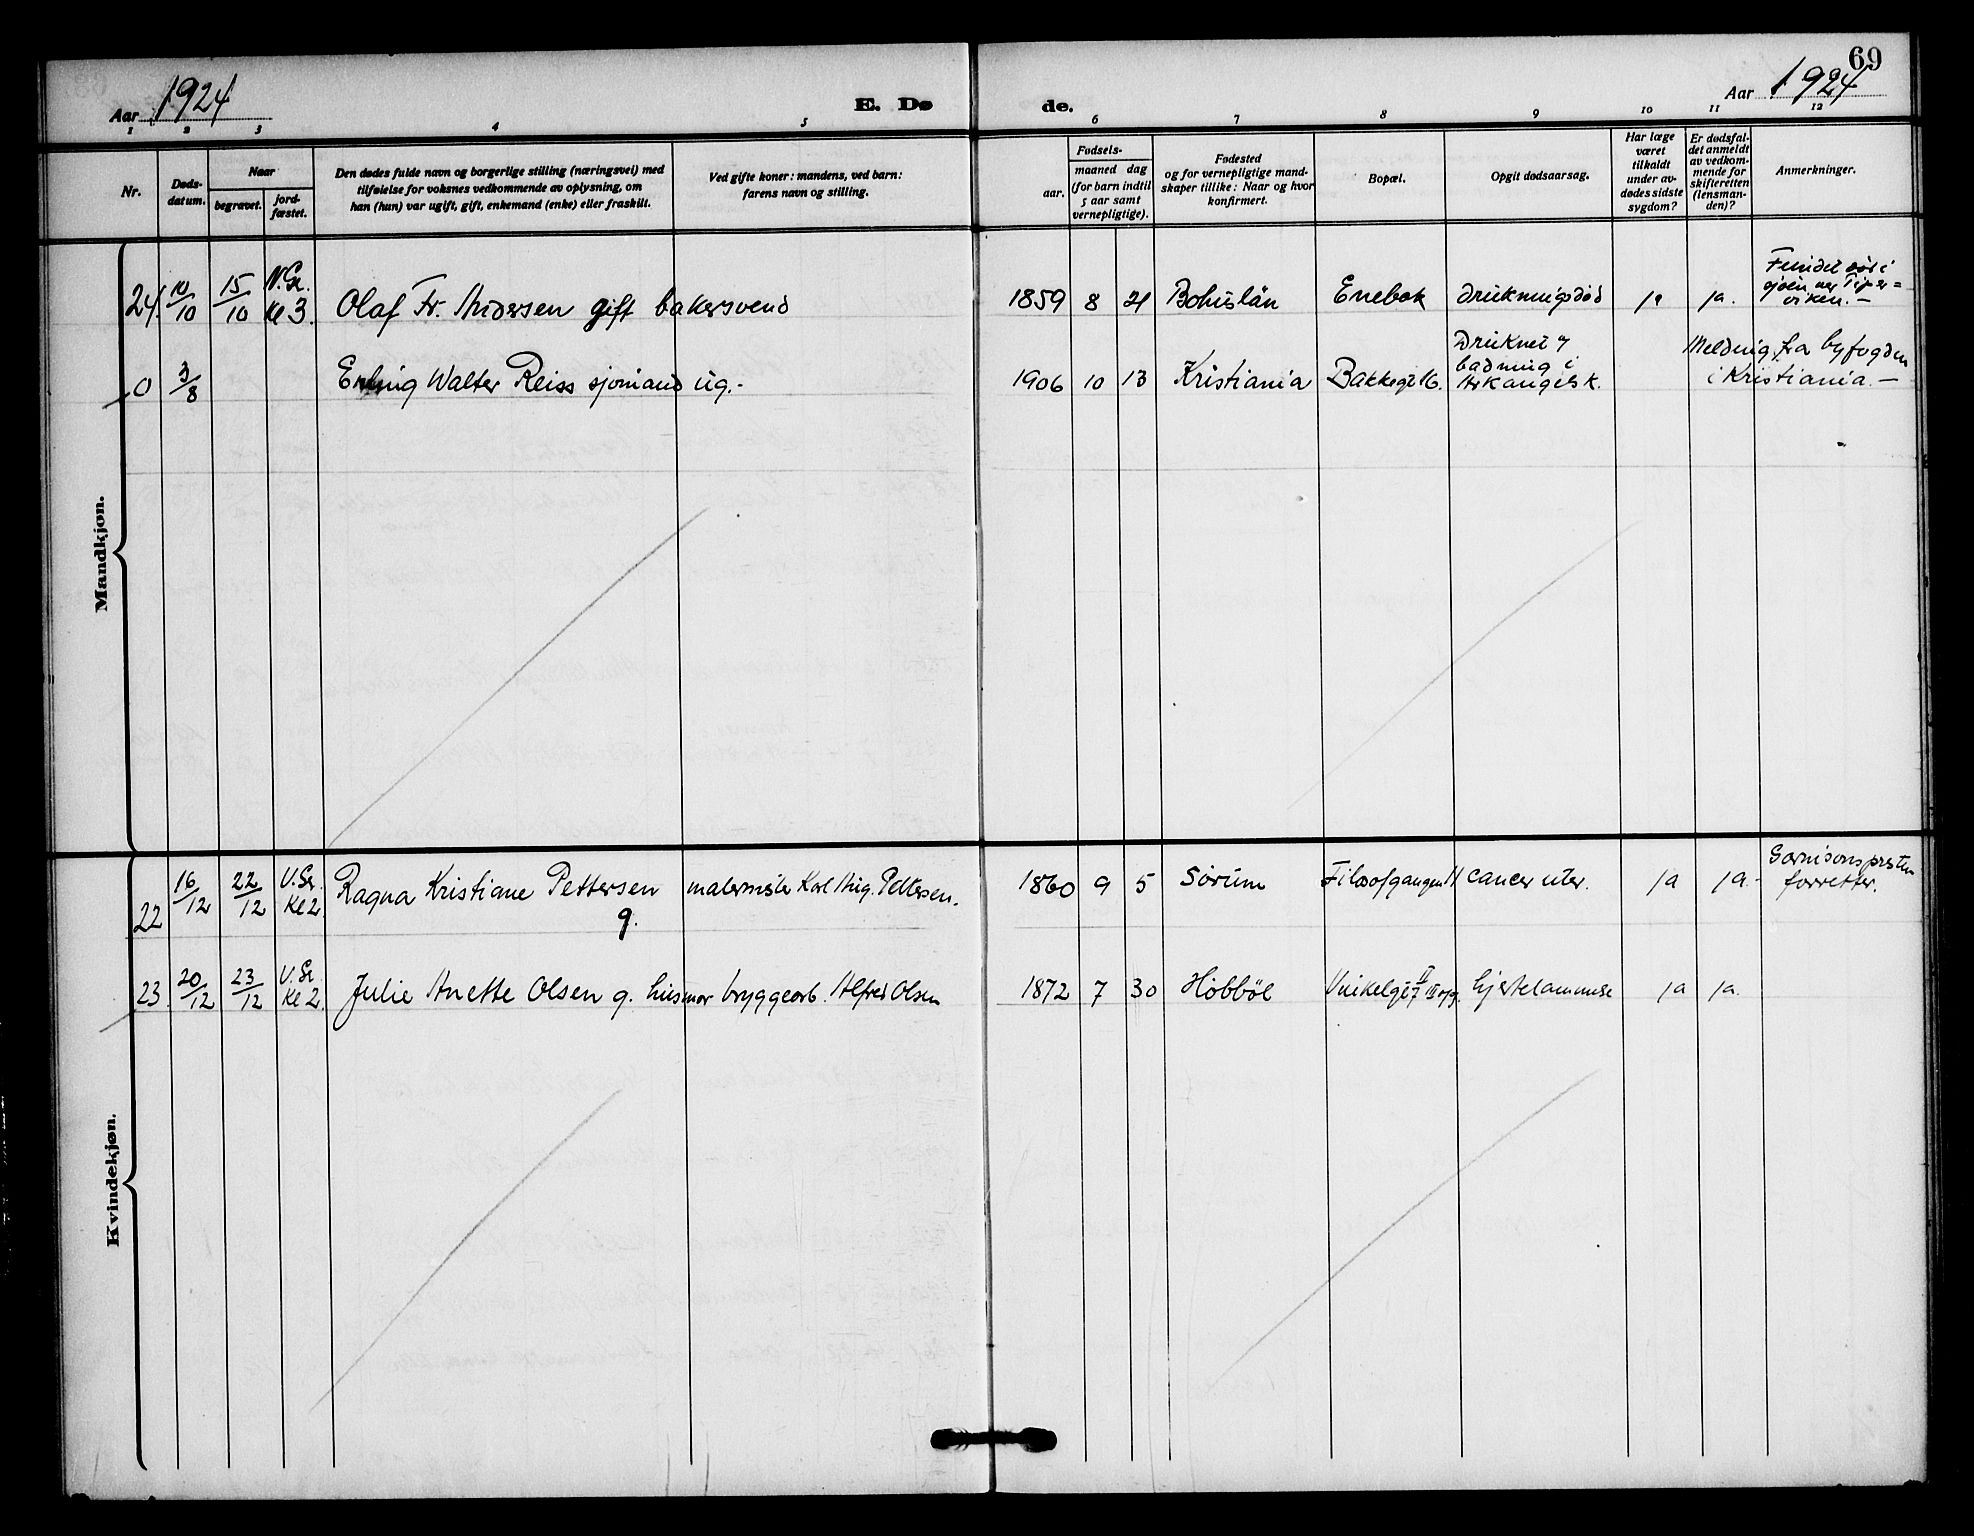 69
Aar 1924
E. Dø
de.
Aar 1924
1 2 3 4 5
6 7 8 9 10 11 12
Nr.
Døds-
datum.
Naar
begravet.
jord-
fæstet.
Den dødes fulde navn og borgerlige stilling (næringsvei) med
tilføielse for voksnes vedkommende av oplysning, om
han (hun) var ugift, gift, enkemand (enke) eller fraskilt.
Ved gifte koner: mandens, ved barn:
farens navn og stilling.
Fødsels-
aar.
maaned dag
(for barn indtil
5 aar samt
vernepligtige).
Fødested
og for vernepligtige mand-
skaper tillike: Naar og hvor
konfirmert.
Bopæl.
Opgit dødsaarsag.
Har læge
været
tilkaldt
under av-
dødes sidste
sygdom?
Er dødsfal-
det anmeldt
av vedkom-
mende for
skifteretten
(lensman-
den)?
Anmerkninger.
Mandkjøn.
24. 10/10 15/10 V.Gr. Kl 3. Olaf Fr. Andersen gift bakersvend 1859 8 21 Bohuslän Enebak drukningsdød ja ja. Fundet død i
sjøen ved
viken. –
0 3/8 Erling Walter Reiss sjømand ug. - 1906 10 13 Kristiania Bakkegt 16. Druknet v
badning i
Arkangelsk.
Meldnig fra byfogden
i Kristiania. –
22 16/12 22/12 V.Gr. Kl 2 Ragna Kristiane Pettersen
g.
malermester Karl Aug. Pettersen. 1860 9 5 Sörum Filosofgangen 11 cancer uter. ja ja. - Garnisonspresten
forretter.
23 20/12 23/12 V.Gr. Kl 2. Julie Anette Olsen g. husmor bryggearb. Alfred Olsen 1872 7 30 Höbböl Vinkelgt 7 II III opg. hjertelammelse ja ja.
Kvindekjøn.